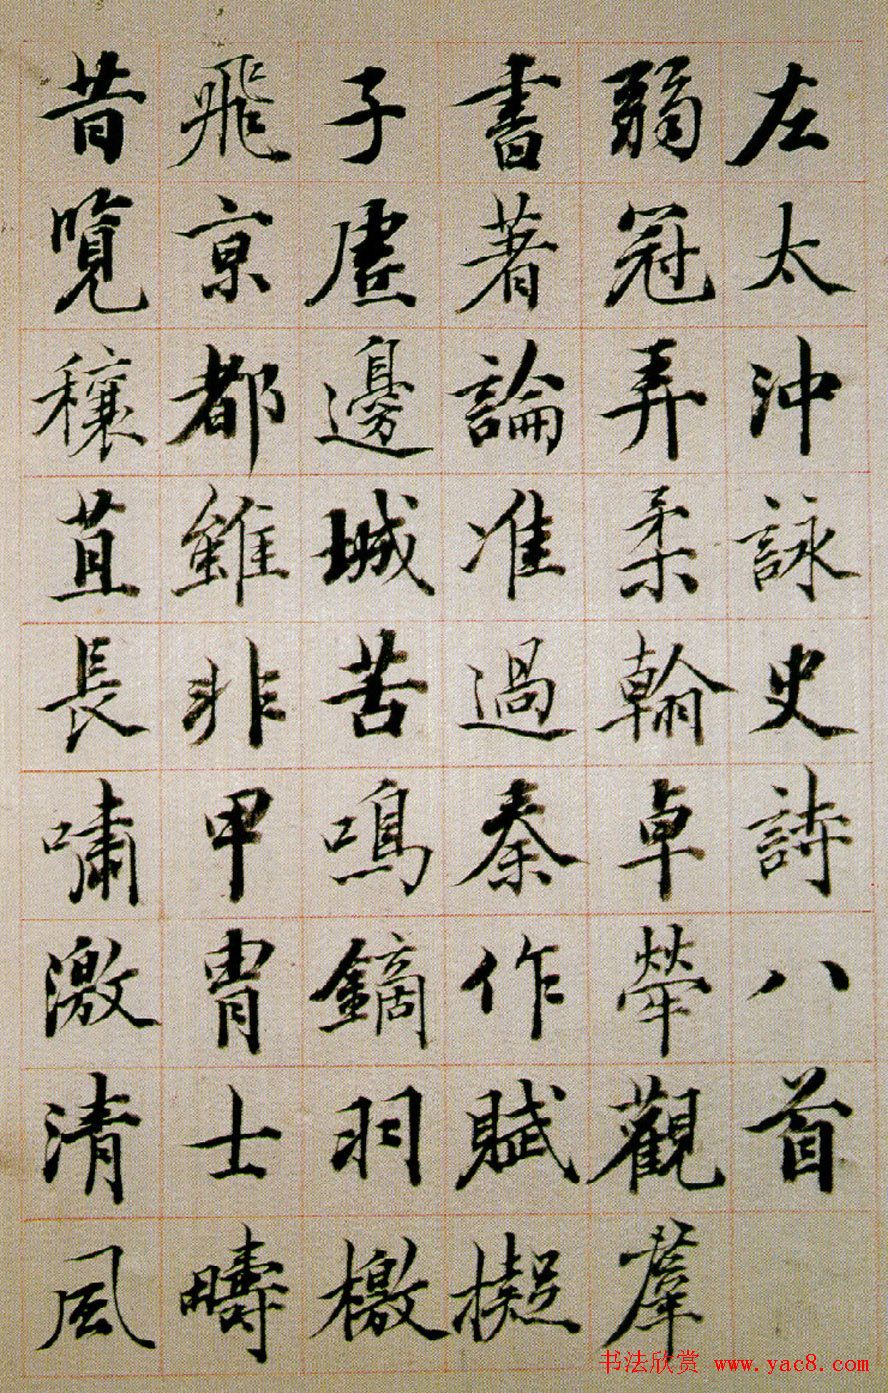 左太沖詠史詩八首
弱冠弄柔翰卓犖觀羣
書著論准過秦作賦擬
子虛邊城苦鳴鏑羽檄
飛京都雖非甲胄士疇
昔覽穰苴長嘯激清風
书法欣赏 www.yac8.com